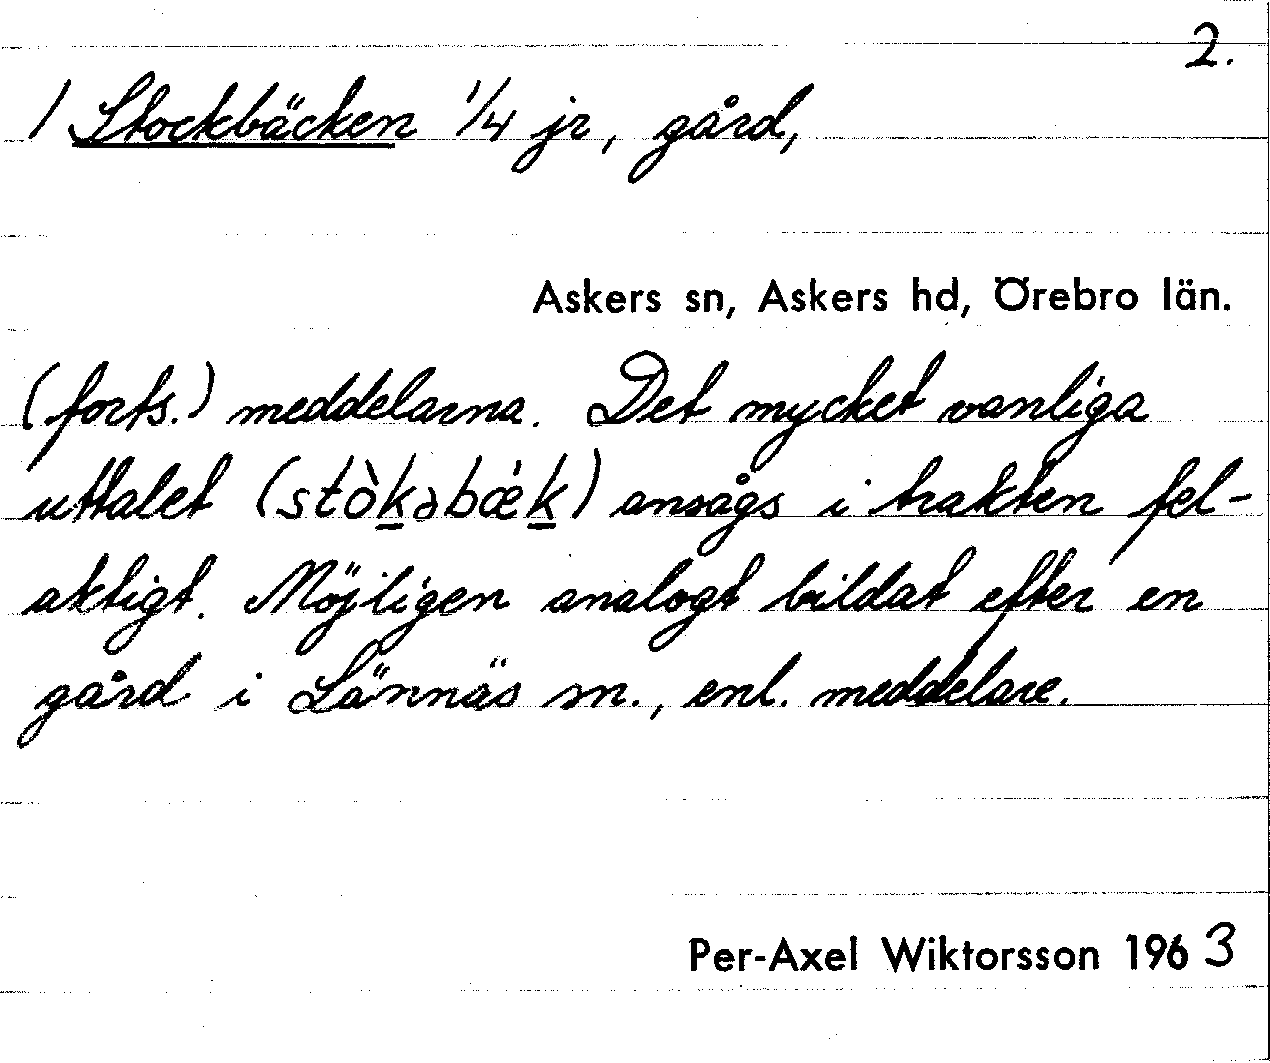 2.
/ Stockbäcken 1/4 jr, gård,
Askers sn, Askers hd, Örebro län.
(forts.) meddelarna. Det mycket vanliga
uttalet (stòkəbæ̀k) ansågs i trakten fel-
aktigt. Möjligen analogt bildat efter en
gård i Lännäs sn., enl. meddelare.
Per-Axel Wiktorsson 1963